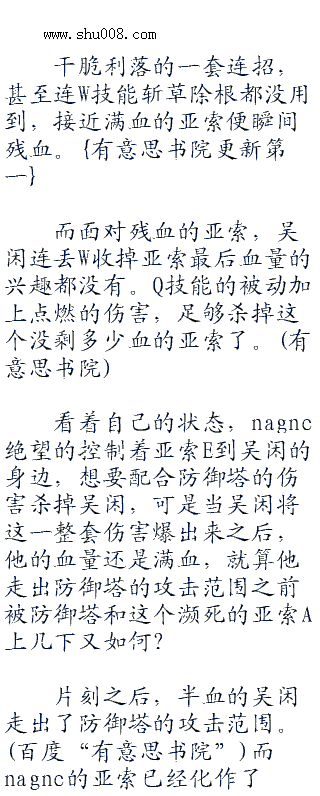 www.shu008.com
干脆利落的一套连招，
甚至连W技能斩草除根都没用
到，接近满血的亚索便瞬间
残血。{有意思书院更新第
一}
而面对残血的亚索，吴
闲连丢W收掉亚索最后血量的
兴趣都没有。Q技能的被动加
上点燃的伤害，足够杀掉这
个没剩多少血的亚索了。(有
意思书院)
看着自己的状态，nagnc
绝望的控制着亚索E到吴闲的
身边，想要配合防御塔的伤
害杀掉吴闲，可是当吴闲将
这一整套伤害爆出来之后，
他的血量还是满血，就算他
走出防御塔的攻击范围之前
被防御塔和这个濒死的亚索A
上几下又如何？
片刻之后，半血的吴闲
走出了防御塔的攻击范围。
(百度“有意思书院”)而
nagnc的亚索已经化作了